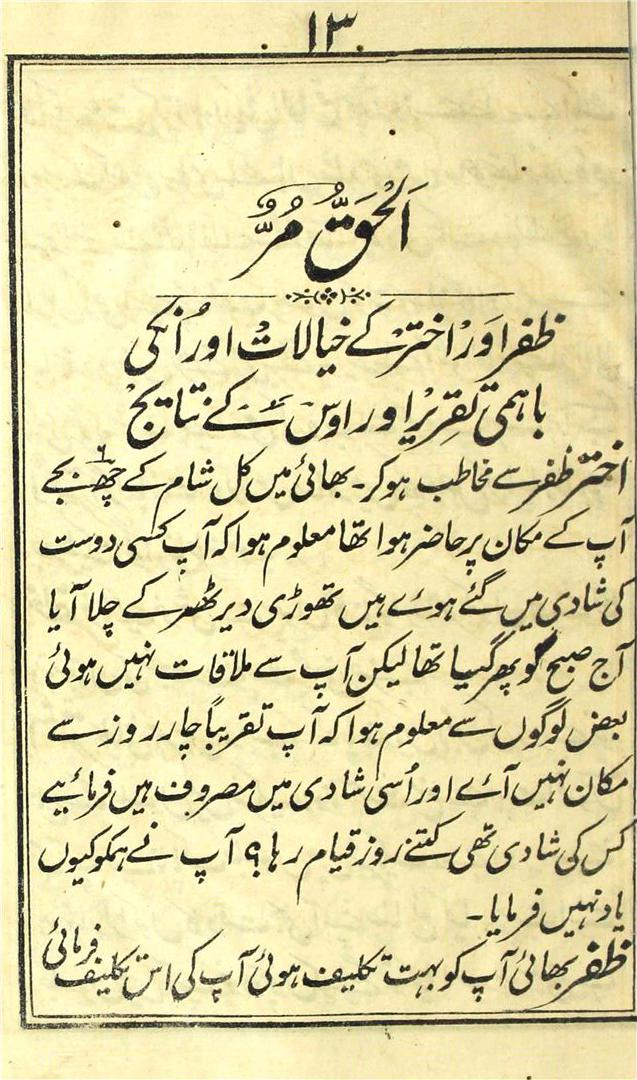 ۱۳
اَلْحَقُّ مُرٌّ
ظفر اور اختر کے خیالات اور اُنکی
باہمی تقریر اور اوس کے نتایج
اختر ظفر سے مخاطب ہوکر۔ بھائی میں کل شام کے چھ ۶ بجے
آپ کے مکان پر حاضر ہوا تھا معلوم ہوا کہ آپ کسی دوست
کی شادی میں گئے ہوے ہیں تھوڑی دیر ٹھر کے چلا آیا
آج صبح کو پھر گیا تھا لیکن آپ سے ملاقات نہیں ہوئی
بعض لوگوں سے معلوم ہوا کہ آپ تقریباً چار روز سے
مکان نہیں آے اور اُسی شادی میں مصروف ہیں فرمائیے
کس کی شادی تھی کتنے روز قیام رہا؟ آپ نے ہمکو کیوں
یاد نہیں فرمایا۔
ظفر بھائی آپ کو بہت تکلیف ہوئی آپ کی اس تکلیف فرمائی